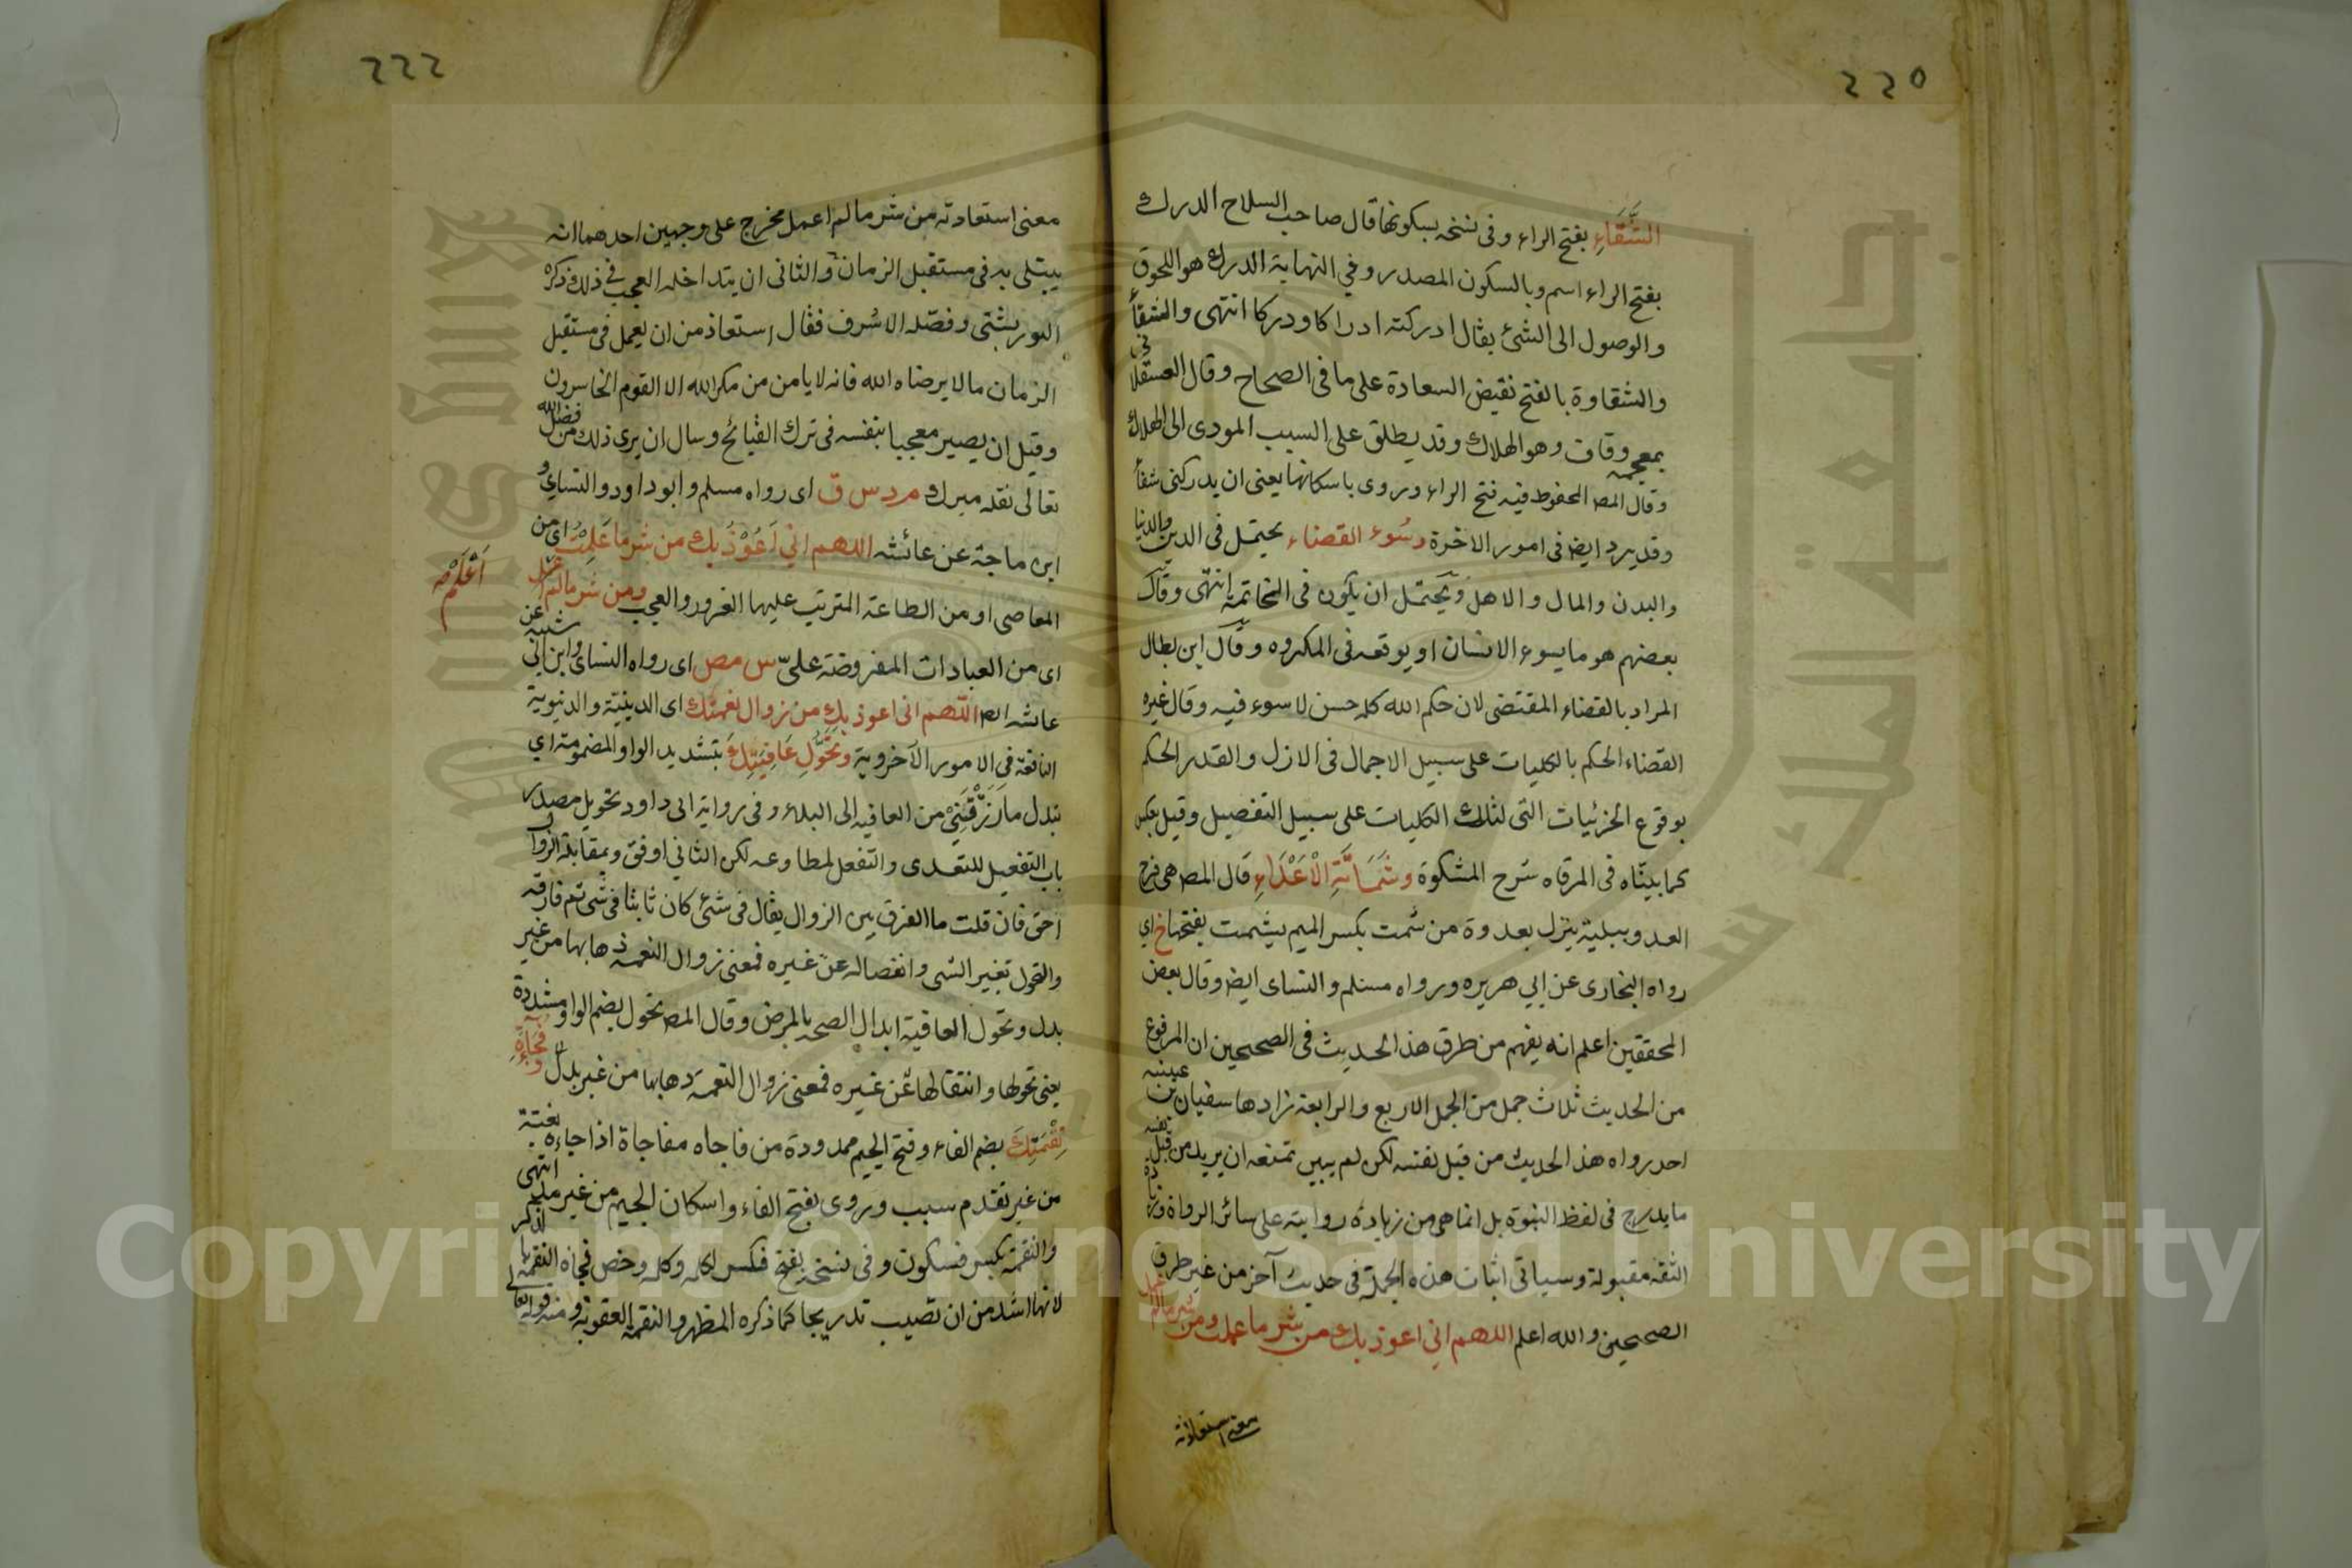 ٢٢٥
الشَّقَاءِ بفتح الراء وفى نسخه بسكونها قال صاحب السلاح الدرك
بفتح الراء اسم وبالسكون المصدر وفي النهاية الدرك هو اللحوق
والوصول الى الشئ يقال ادركته ادراكا ودركا انتهى والشقأ
والشقاوة بالفتح نقيض السعادة على ما فى الصحاح وقال العسقلانى
بمعجمه وقاف وهو الهلاك وقد يطلق على السبب المودى الى الهلاك
وقال المصـ المحفوظ فيه فتح الراء وروى باسكانها يعنى ان يدركنى شقأ
وقد يرد ايضا فى امور الاخرة وسُوء القضاء يحتمل فى الدين والدنيا
والبدن والمال والاهل ويحتمل ان يكون فى الخاتمة انتهى وقال
بعضهم هو ما يسوء الانسان او يوقعه فى المكروه وقال ابن بطال
المراد بالقضاء المقتضى لان حكم الله كله حسن لا سوء فيه وقال غيره
القضاء الحكم بالكليات على سبيل الاجمال فى الازل والقدر الحكم
بوقوع الجزئيات التى لتلك الكليات على سبيل التفصيل وقيل بعكس
كما بيناه فى المرقاه شرح المشكوة وشَمَاتَةِ الْاَعْدَاءِ قال المصـ هى فرح
العدو ببلية ينزل بعدوة من شمت بكسر الميم يشمت بفتحها خ اي
رواه البخارى عن ابي هريره ورواه مسلم والنساى ايضا وقال بعض
المحققين اعلم انه يفهم من طرق هذا الحديث فى الصحيحين ان المرفوع
من الحديث ثلاث جمل من الجمل الاربع والرابعة زادها سفيان بن عيينه
احد رواه هذا الحديث من قبل نفسه لكن لم يبين تمنعه ان يريد من قبل نفسه
ما يدرج فى لفظ النبوة بل انما هى من زيادة روايته على سائر الرواة وزيادة
الثقه مقبولة وسياتى اثبات هذه الجملة فى حديث آخر من غير طرق
الصحيحين والله اعلم اللهم اني اعوذ بك من شر ما عملت ومن شر مالم اعمل
معنى استعاذته
٢٢٢
معنى استعاذته من شر مالم اعمل مخرج على وجهين احدهما انه
يبتلى به فى مستقبل الزمان والثانى ان يتداخله العجب فى ذلك ذكره
التوربشتى وفصّله الاشرف فقال استعاذ من ان يعمل فى مستقبل
الزمان مالا يرضاه الله فانه لا يامن من مكر الله الا القوم الخاسرون
وقيل ان يصير معجبا بنفسه فى ترك القبائح وسال ان يرى ذلك من فضل الله
تعالى نقله ميرك م د س ق اى رواه مسلم وابو داود والنساي و
ابن ماجة عن عائشه اللهم اني اَعُوْذُ بك من شر ما عَلِمْتُ اى من
المعاصى او من الطاعة المترتب عليها الغرور والعجب ومن شر مالم
اَعْلَمْ
اى من العبادات المفروضة علىّ س مص اى رواه النساى وابن ابي شيبه عن
عائشه ايضا اللّهم انى اعوذ بك من زوال نعمتك اى الدينية والدنيوية
النافعة فى الامور الآخروية وتَحَوُّلِ عَافِيَتِكَ بتشديد الواو المضمومة اي
تبدل ما رَزَقْتَنِيْ من العافيه الى البلاء وفى رواية ابى داود تحويل مصدر
باب التفعيل للتعدى والتفعل لمطاوعه لكن الثاني اوفق وبمقابلة الزوال
احق فان قلت ما الفرق بين الزوال يقال فى شئ كان ثابتا فى شى ثم فارقه
والتحول تغير الشى وانفصاله عن غيره فمعنى زوال النعمة ذهابها من غير
بدل وتحول العافية ابدال الصحه بالمرض وقال المصـ تحول بضم الواو مشددة
يعنى تحولها وانتقالها عن غيره فمعنى زوال النعمة ذهابها من غير بدل وفُجَاءَةِ
نِقْمَتِكَ بضم الفاء وفتح الجيم ممدودة من فاجاه مفاجاة اذا جاءه بغتة
من غير تقدم سبب وروى بفتح الفاء واسكان الجيم من غير مد انتهى
والنقمة بكسر فسكون وفى نسخه بفتح فكسر ككلمه وكلمه وخص فجاه النقمة بالذكر
لانها اشد من ان تصيب تدريجا كما ذكره المظهر والنقمة العقوبة ومنه قوله تعالى
جامعة الملك سعود
King Saud University
Copyright © King Saud University